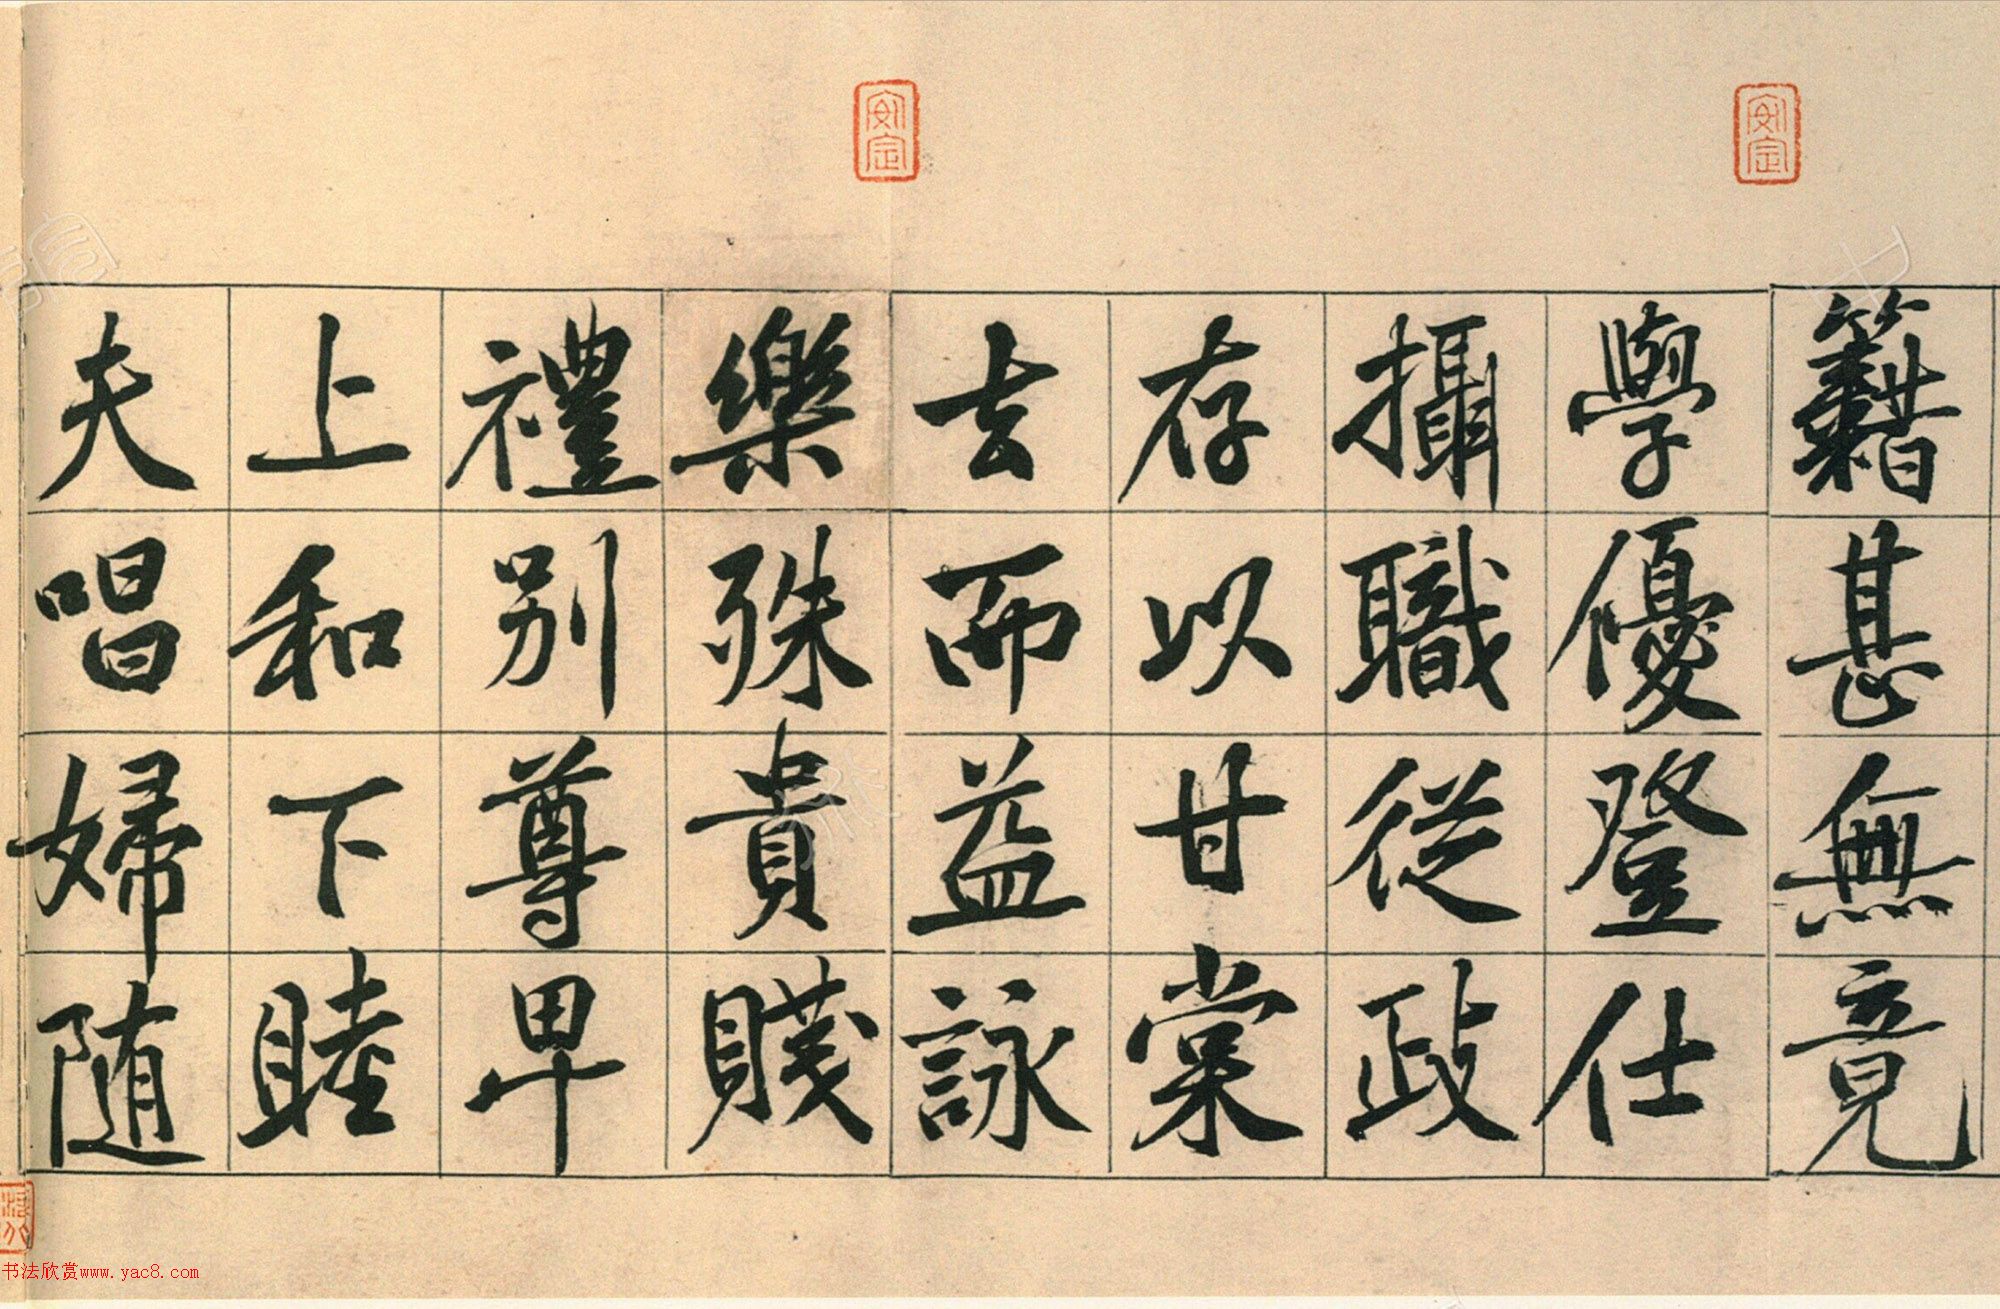 籍甚無竟
學優登仕
攝職從政
存以甘棠
去而益詠
樂殊貴賤
禮別尊卑
上和下睦
夫唱婦随
安定
安定
书法欣赏www.yac8.com